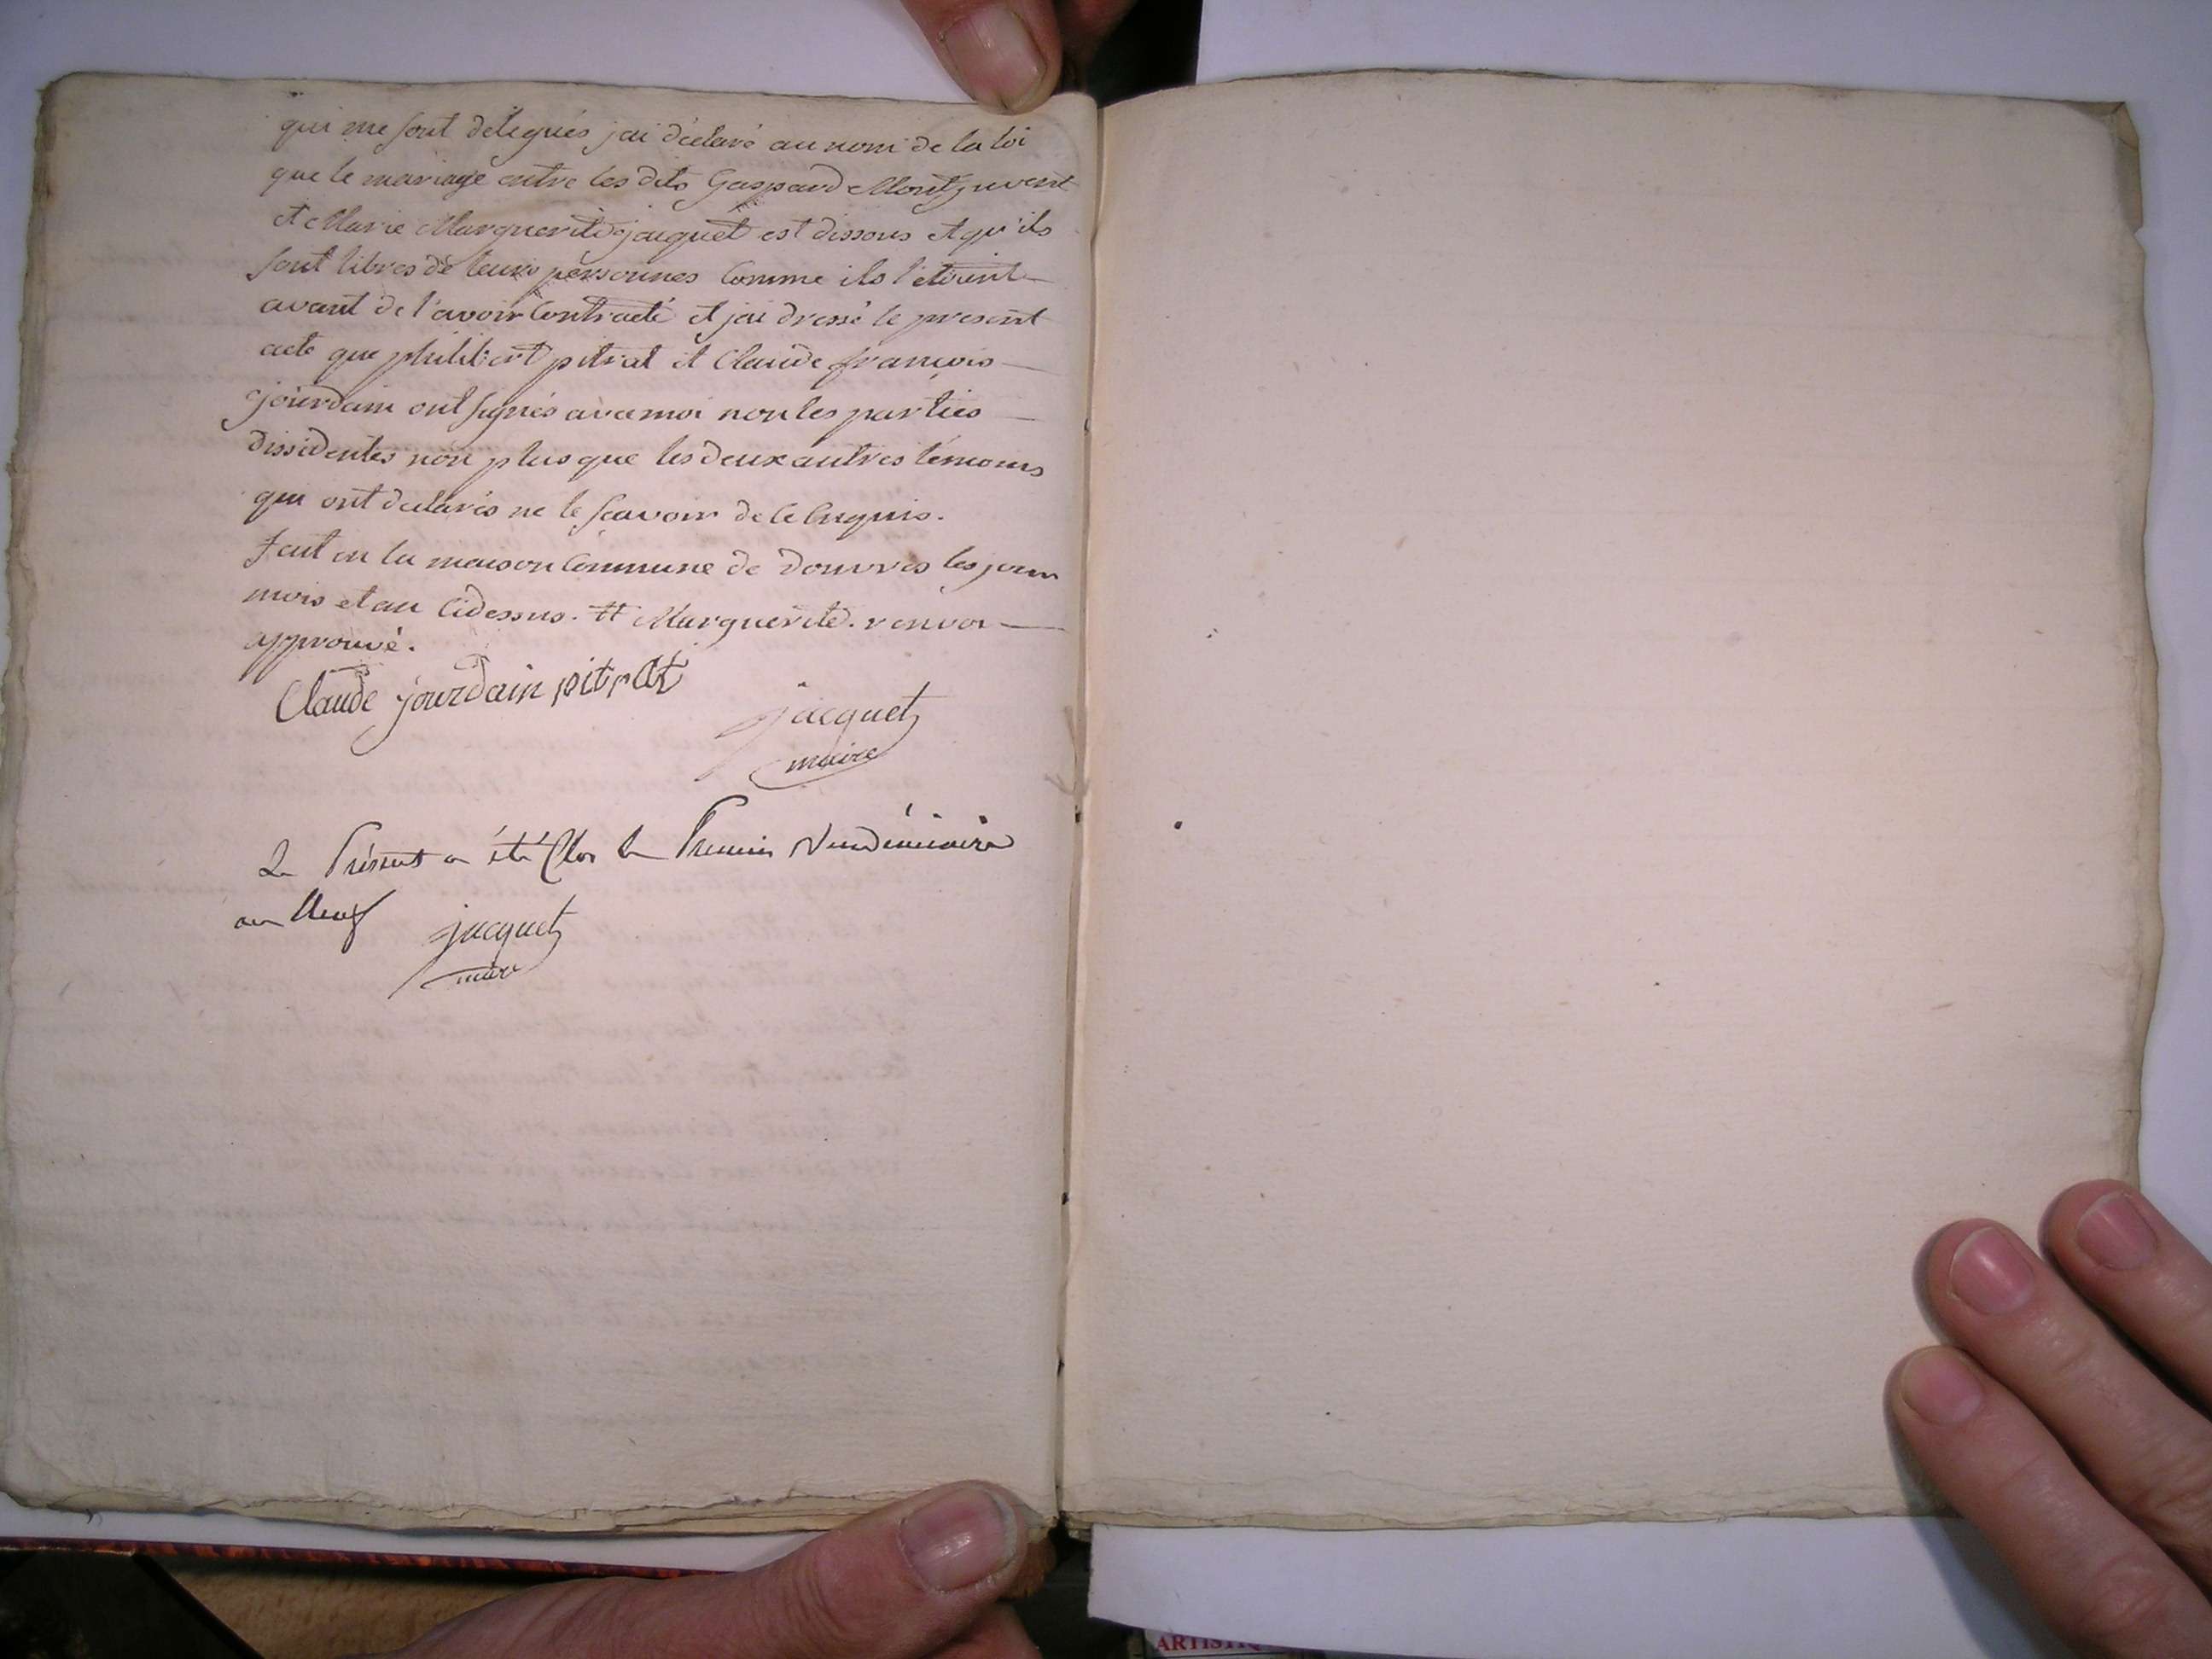 qui me sont délegués jai déclaré au nom de la loi
que le mariage entre les dits Gaspard Montjuvent
et Marie Marguerite jacquet est dissous et qu'ils
sont libres de leurs personnes comme ils l'etoient
avant de l'avoir Contracté et jai dressé le present
acte que philibert pitrat et Claude françois
jourdain ont signés avec moi non les parties
dissidentes non plus que les deux autres témoins
qui ont declarés ne le scavoir de ce enquis.
fait en la maison Commune de douvres les jour
mois et an Cidessus. tt Marguerite. renvoi
approuvé.
Claude jourdain pitrat
jacquet
maire
Le Présent a été Clos le Premier Vendémiaire
an Neuf
jacquet
maire
ARTISTIQ